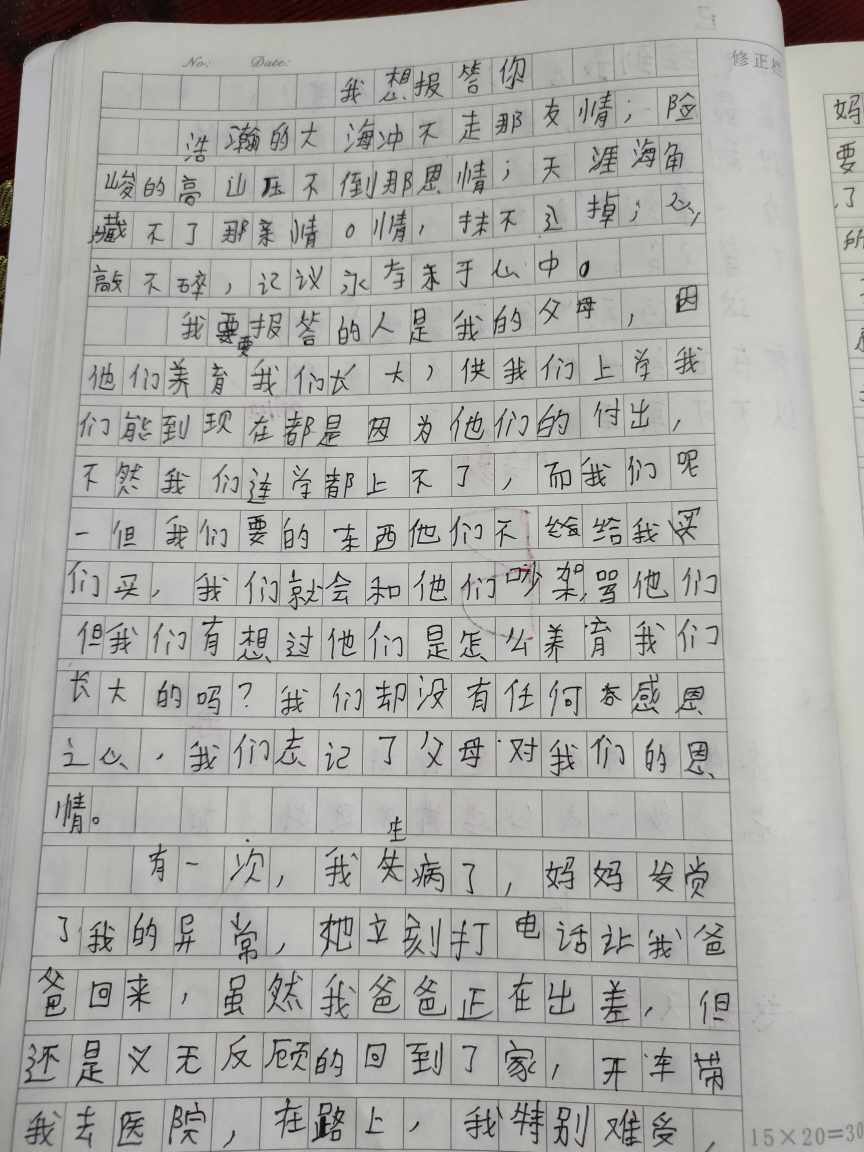 No: Date:
修正栏
我想报答你
浩瀚的大海冲不走那友情；险
峻的高山压不倒那恩情；天涯海角
藏不了那亲情。情，抹不掉；心，
敲不碎，记议永存于心中。
我要报答的人是我的父母，因
他们养育我们长大，供我们上学我
们能到现在都是因为他们的付出，
不然我们连学都上不了，而我们呢
一但我们要的东西他们不给给我买
们买，我们就会和他们吵架，骂他们
但我们有想过他们是怎么养育我们
长大的吗？我们却没有任何感恩
之心，我们忘记了父母对我们的恩
情。
有一次，我生病了，妈妈发觉
了我的异常，她立刻打电话让我爸
爸回来，虽然我爸爸正在出差，但
还是义无反顾的回到了家，开车带
我去医院，在路上，我特别难受，
15×20=30
妈
要
了
所